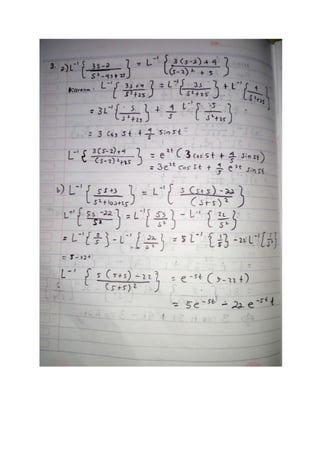 3. a) L⁻¹ { 3s-2 / s²-4s+29 } = L⁻¹ { 3(s-2)+4 / (s-2)²+5 }
Karena : L⁻¹ { 3s+4 / s²+25 } = L⁻¹ { 3s / s²+25 } + L⁻¹ { 4 / s²+25 }
= 3L⁻¹ { s / s²+25 } + 4/5 L⁻¹ { 5 / s²+25 }
= 3 cos 5t + 4/5 sin 5t
L⁻¹ { 3(s-2)+4 / (s-2)²+25 } = e²ᵗ ( 3 cos 5t + 4/5 sin 5t )
= 3e²ᵗ cos 5t + 4/5 e²ᵗ sin 5t
b) L⁻¹ { 5s+3 / s²+10s+25 } = L⁻¹ { 5(s+5)-22 / (s+5)² }
L⁻¹ { 5s-22 / s² } = L⁻¹ { 5s / s² } - L⁻¹ { 22 / s² }
= L⁻¹ { 5 / s } - L⁻¹ { 22 / s² } = 5 L⁻¹ { 1 / s } - 22 L⁻¹ { 1 / s² }
= 5-22t
L⁻¹ { 5(s+5)-22 / (s+5)² } = e⁻⁵ᵗ (5-22t)
= 5e⁻⁵ᵗ - 22 e⁻⁵ᵗ t